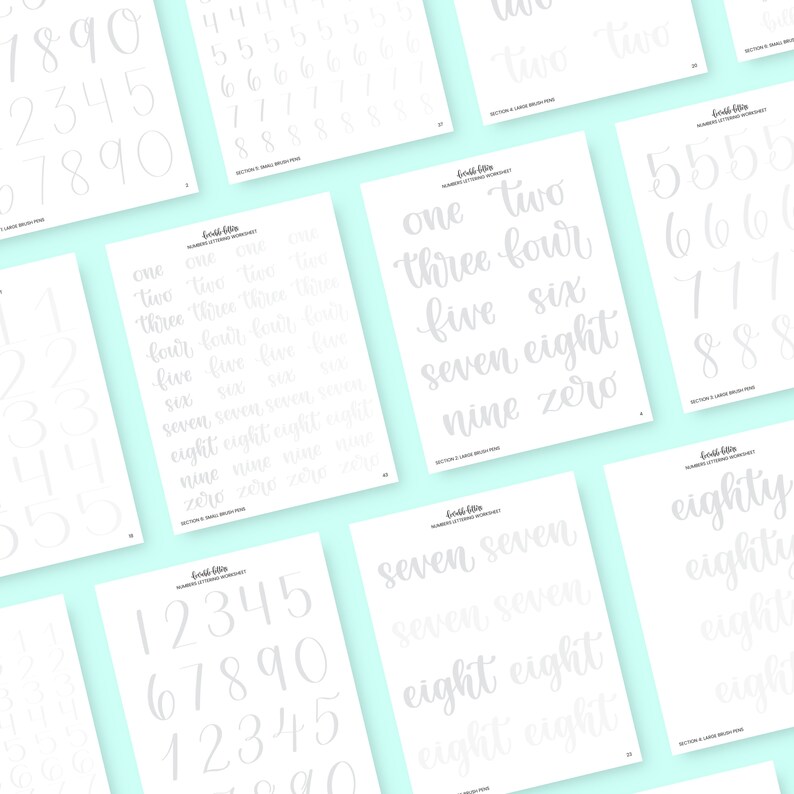 7890
2345
67890
LARGE BRUSH PENS
2
4 4 4 4 4 4 4
5 5 5 5 5 5 5 5
6 6 6 6 6 6 6 6
7 7 7 7 7 7 7 7
8 8 8 8 8 8 8 8
SECTION 5: SMALL BRUSH PENS
37
two
two two
SECTION 4: LARGE BRUSH PENS
20
1 1
2 2
3 3
4 4
5 5 5
18
lovable letters
NUMBERS LETTERING WORKSHEET
one one one one
two two two two
three three three three
four four four four
five five five five
six six six six
seven seven seven seven
eight eight eight eight
nine nine nine nine
zero zero zero zero
SECTION 6: SMALL BRUSH PENS
43
lovable letters
NUMBERS LETTERING WORKSHEET
one two
three four
five six
seven eight
nine zero
SECTION 2: LARGE BRUSH PENS
4
lovable letters
NUMBERS LETTERING WORKSHEET
5 5 5 5
6 6 6 6
7 7 7
8 8 8
SECTION 3: LARGE BRUSH PENS
lovable letters
NUMBERS LETTERING WORKSHEET
12345
67890
12345
7890
lovable letters
NUMBERS LETTERING WORKSHEET
seven seven
seven seven
eight eight
eight eight
BRUSH PENS
23
lovable letters
NUMBERS LETTERING WORKSHEET
eighty
eighty
eighty
eighty
SECTION 4: LARGE BRUSH PENS